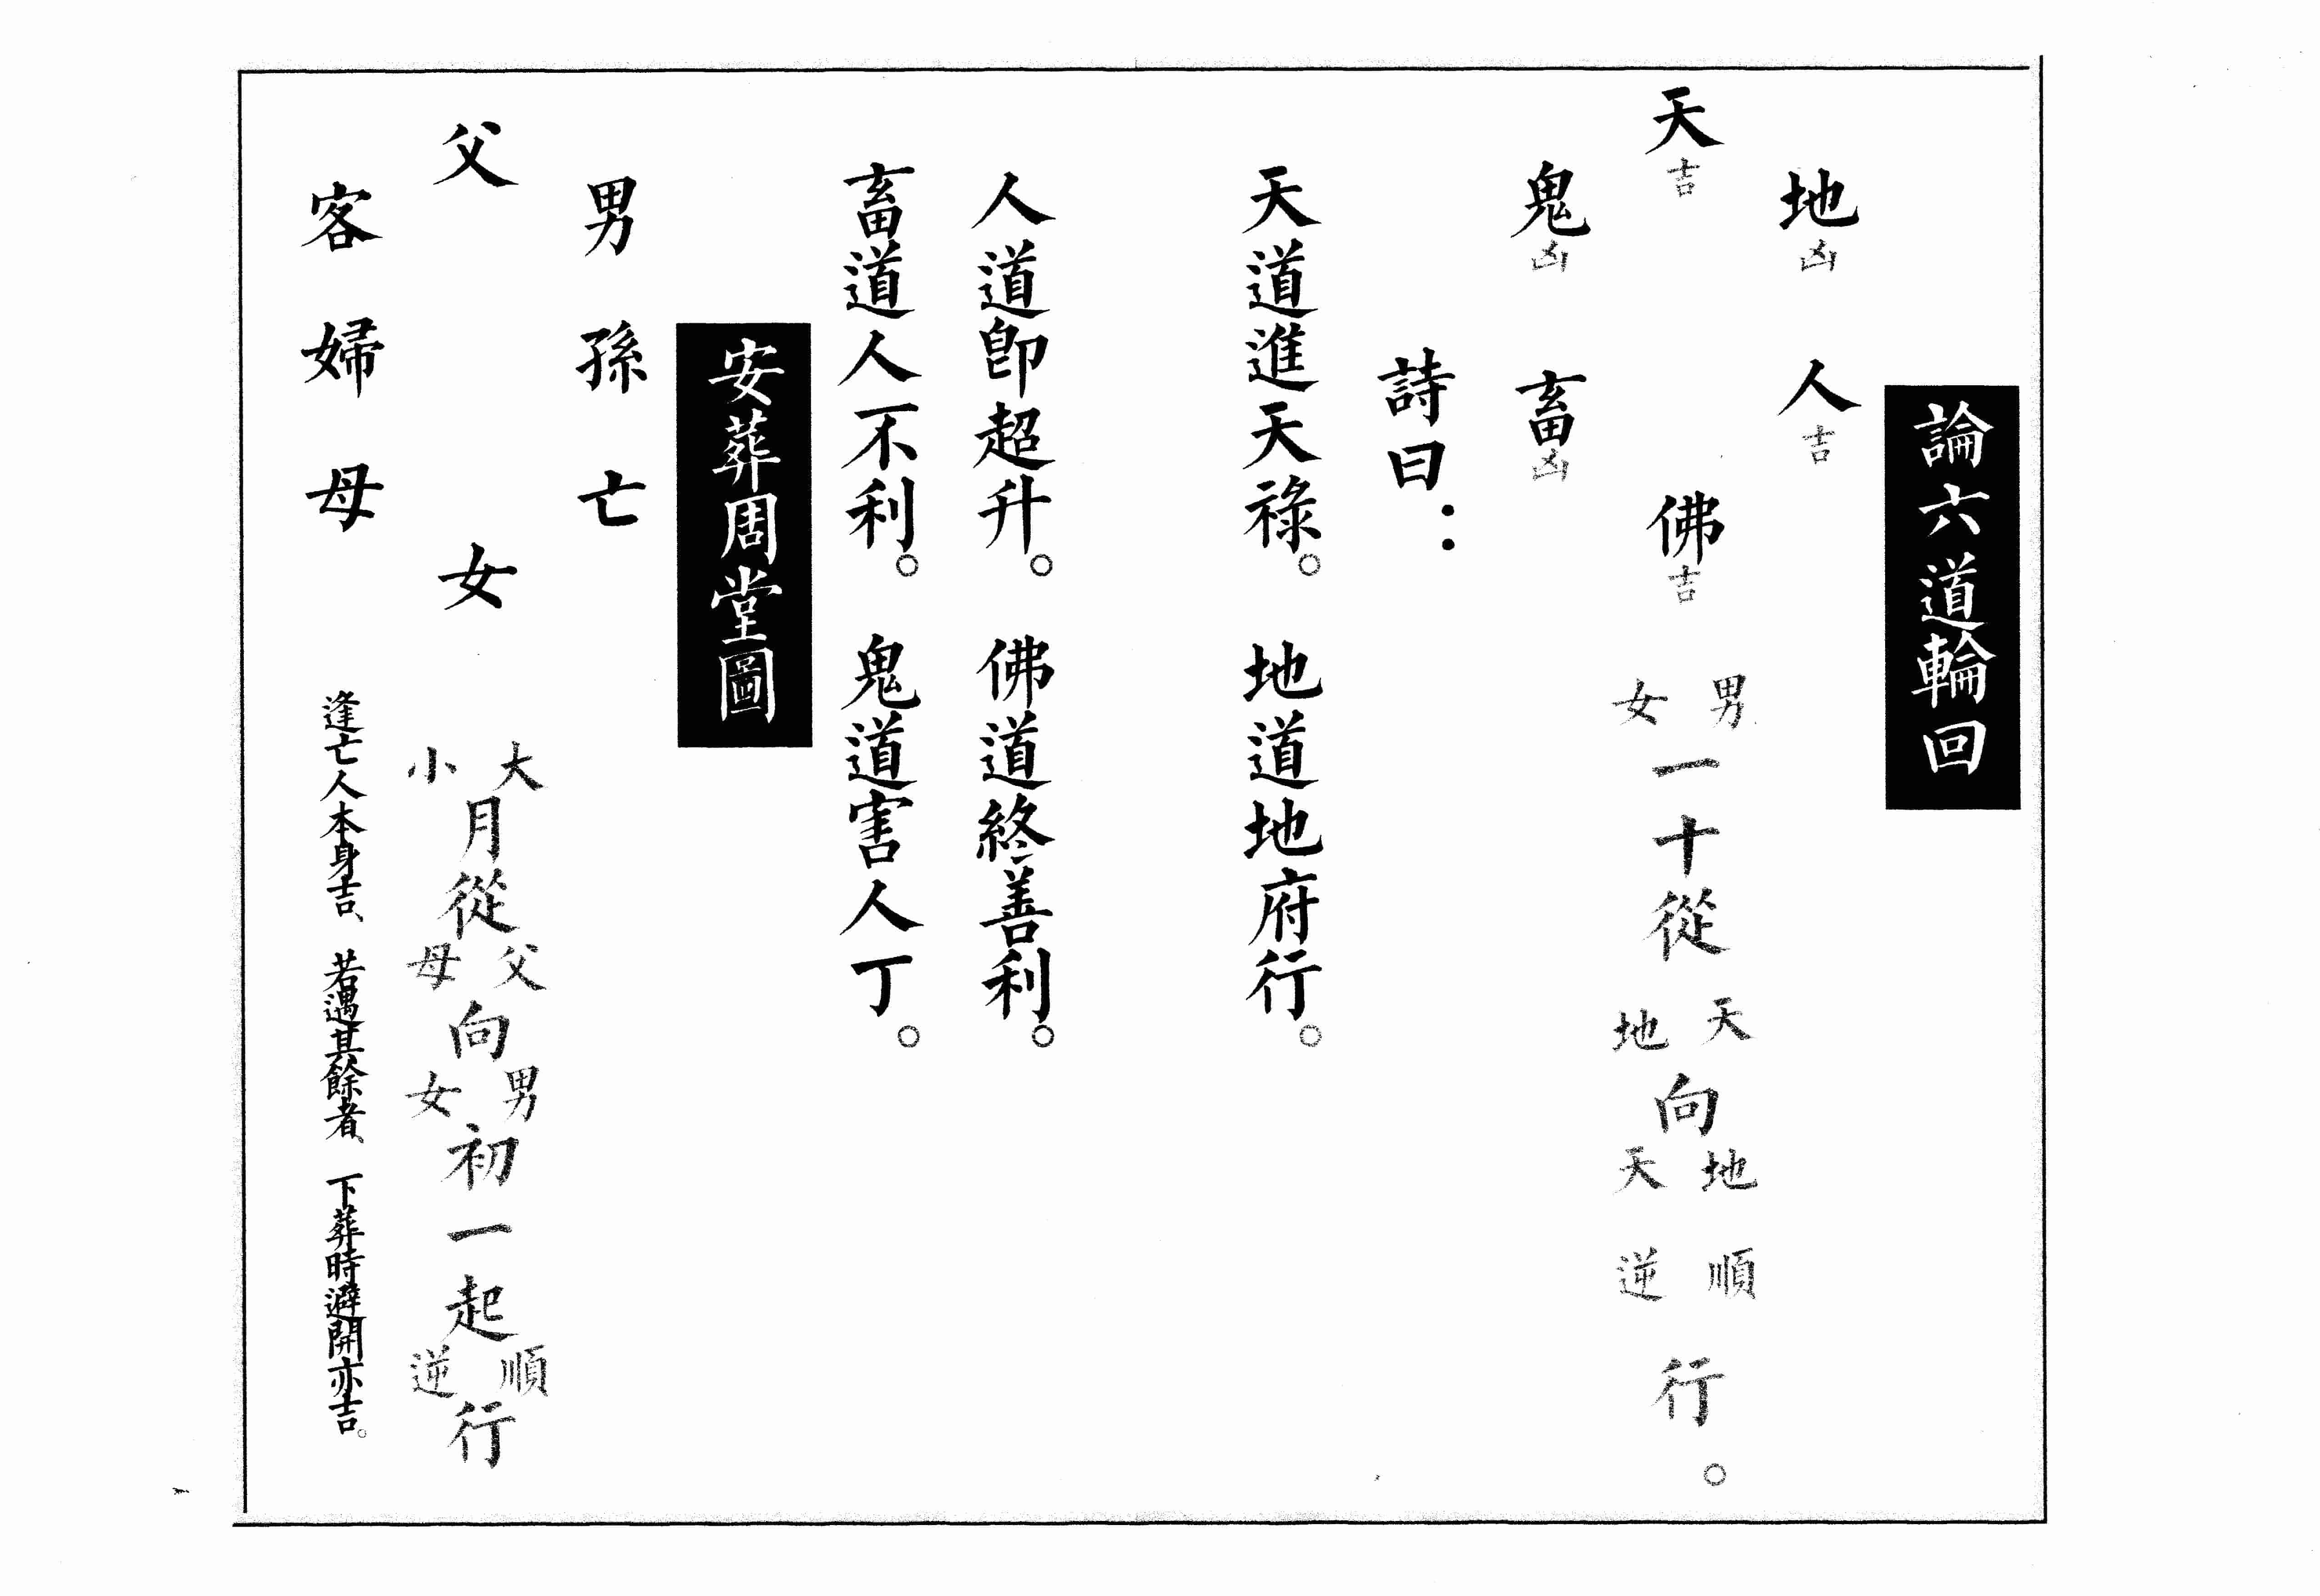 論六道輪回
地凶 人吉
天吉 佛吉
男女一十從天地向地天順逆行。
鬼凶 畜凶
詩曰：
天道進天祿。 地道地府行。
人道卽超升。 佛道終善利。
畜道人不利。 鬼道害人丁。
安葬周堂圖
男 孫 亡
父 女
大小月從父母向男女初一起順逆行
客 婦 母
逢亡人本身吉、若遇其餘者、下葬時避開亦吉。